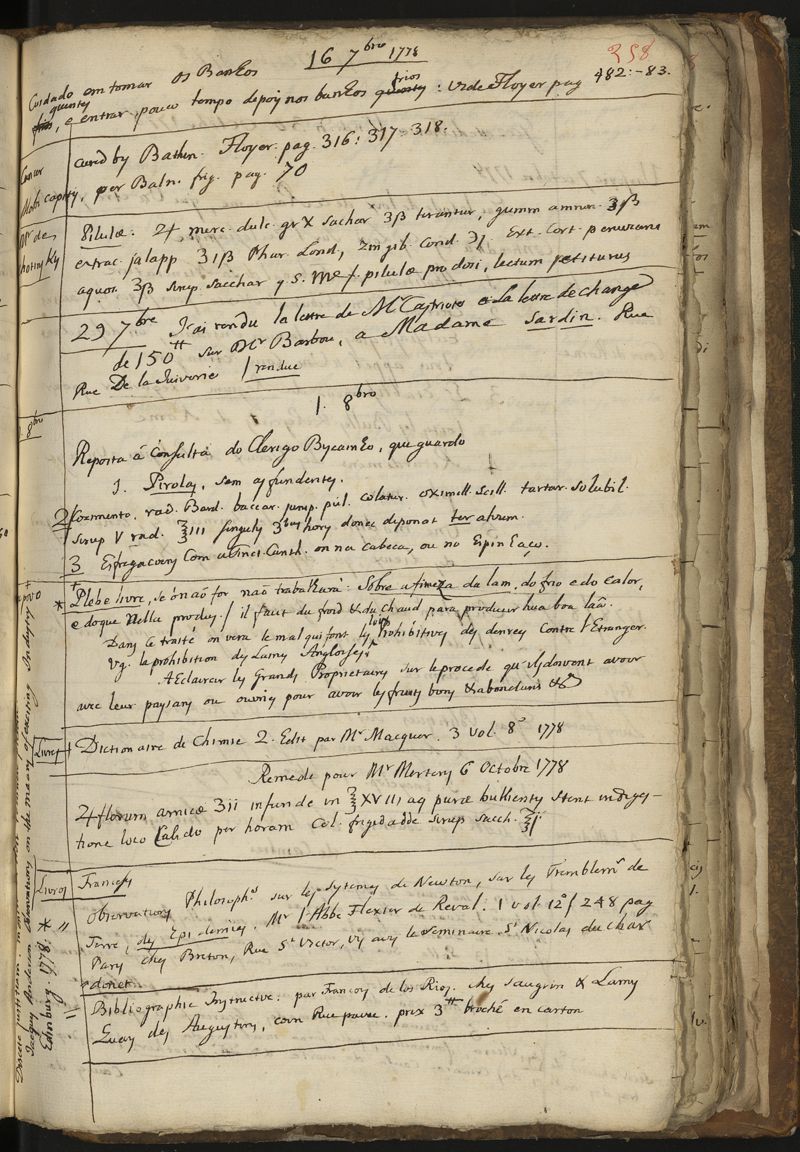 16 7bro 1778
258
Cuidado em tomar os Banhos
quentes
frios
, e entrar pouco tempo depois nos banhos quentes : vide Floyer pag 482:-83.
cured by Bathin. Floyer. pag. 316: 317: 318:
capitis, per Baln. frig. pag. 70
Mr de
Pilulæ. ♃ merc. dulc. gr X sachar ʒß terantur, gumm ammon. ʒß
extrac. jalapp ʒiß Phar. Lond, zingib. Cond. ʒj Ext. Cort. peruviani
aquos. ʒß sirup. sacchar q. s. Mc f. pilulæ pro dosi, lectum petiturus
29 7bre J'ai rendu la lettre de Mr e la lettre de change
de 150tt sur Mr Barbou, a Madame Sardin. Rue
Rue De la Juiverie / rendue
8bro
1. 8bro
Reposta á consulta do Clerigo Bycainho, que guardo
1. Pirolas, sem
2 Cozimento. rad. Bard. baccar. junip. pul. colatur. oximell. scill. tartar. solubil.
sirup V rad. ℥iii singulis 3bus horis donec deponat ter alvum.
3 Esfregacoens Com Canth. on na cabeca, ou no Espinhaço.
* Plebe livre, se o não for não trabalhara: Sobre a fineza da lam, do frio e do calor,
e do que Nella produs. / il faut du froid & du chaud para produzir hua boa laã.
Dans ce traité on vera le mal qui font les loix Prohibitives des denrees Contre l'Etranger.
Vg. la prohibition des Laines Angloises.
A Eclaircir les Grands Proprietaires sur le procede qu'ils doivent avoir
avec leur paysans ou ouvriers pour avoir les fruits bons & abondans &a
Livres
Dictionaire de Chimie 2. Edit par Mr Macquer. 3 vol. 8o 1778
Remede pour Mr Mertens 6 Octobre 1778
♃ florum arnicæ ʒii infunde in ℥XVIII aq puræ bullientis stent in diges-
tione loco Calido per horam Col. frigid adde sirup sacch. ℥j
Livros
Frances
Observations Philosophes sur les sytemes de Newton, sur les Tremblemts de
Terre, des Epidemies. Mr l'Abbe Flexier de Reval. 1 vol 12o / 248 pag
Paris ches Berton, Rue St Victor, vis avis le Seminaire St Nicolas du Char
donet
Bibliographie Instructve. par Francois de los Rios. ches Saugrin & Lamy
Quay des Augustins, coin Rue pavée. prix 3tt broché en carton
Jacques Anderson Observations on the means of exciting Industry
Edinburg. 1778.